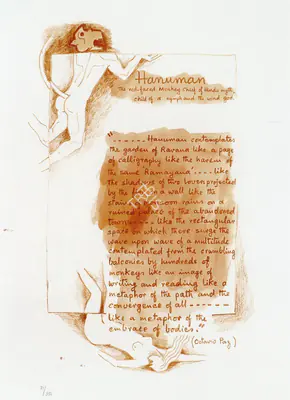 Hanuman
The red-faced Monkey Chief of Hindu myth,
child of a nymph and the wind God
"------ Hanuman contemplates
the garden of Ravana like a page
of calligraphy like the harem of
the same Ramayana .... like
the shadows of two lovers projected
by the fire on a wall like the
stains of monsoon rains on a
ruined palace of the abandoned
town --- like the rectangular
space on which there surge the
wave upon wave of a multitude
contemplated from the crumbling
balconies by hundreds of
monkeys like an image of
writing and reading like a
metaphor of the path and the
convergence of all ------
like a metaphor of the
embrace of bodies."
(Octavio Paz)